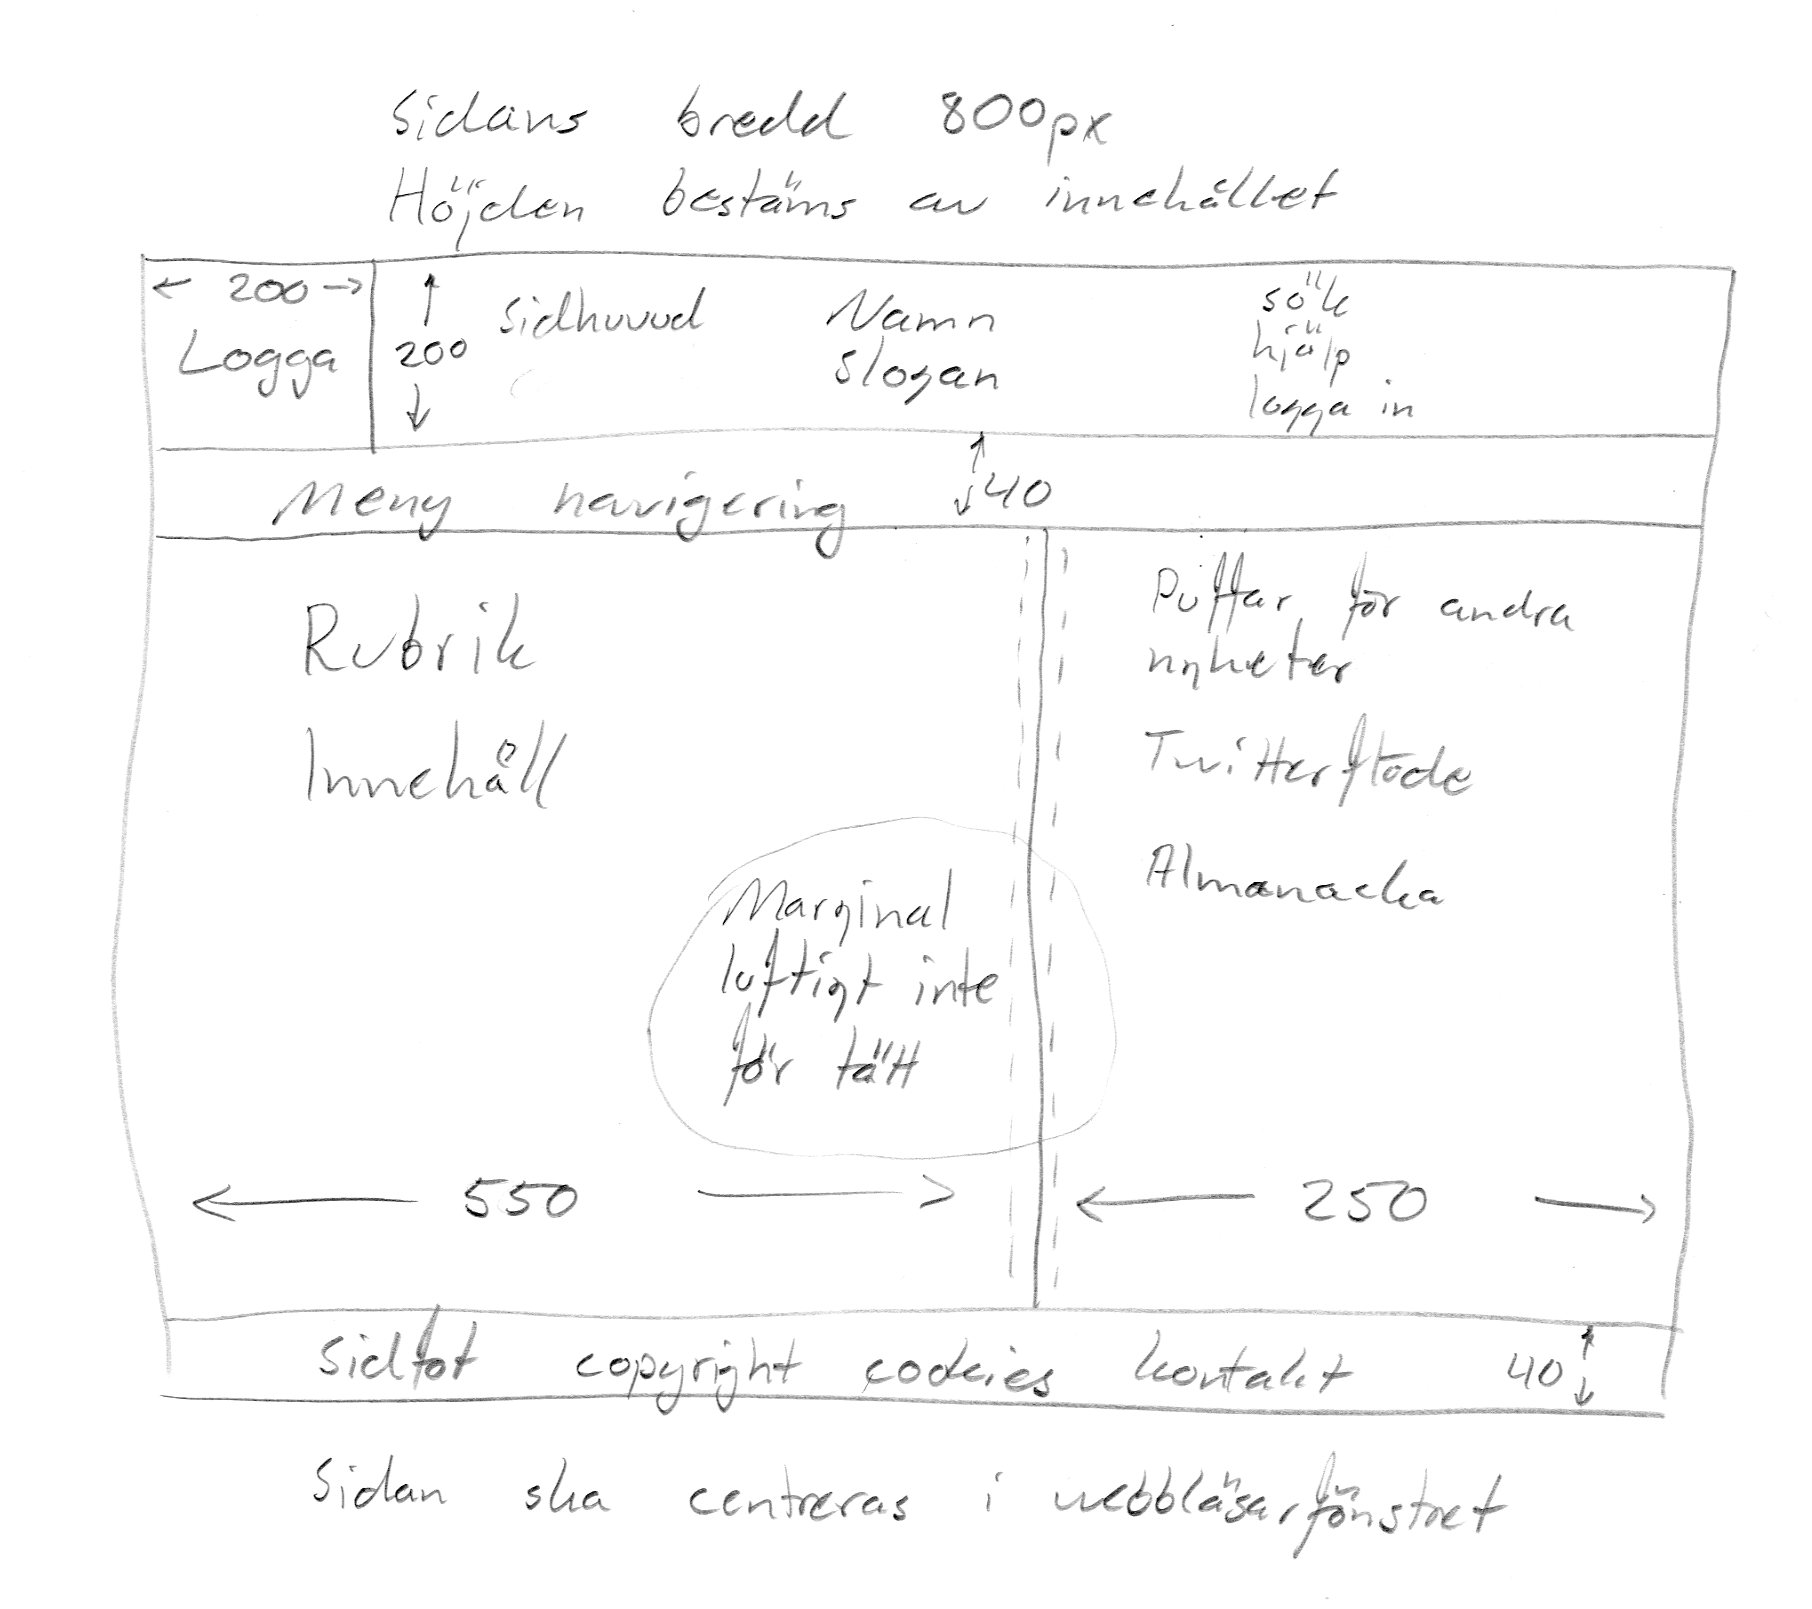 Sidans bredd 800px
Höjden bestäms av innehållet
← 200 →
Logga
200
Sidhuvud
Namn
Slogan
sök
hjälp
logga in
Meny navigering
40
Rubrik
Innehåll
Marginal
luftigt inte
för tätt
Puffar för andra
nyheter
Twitterflöde
Almanacka
550
250
Sidfot copyright cookies kontakt 40
Sidan ska centreras i webbläsarfönstret